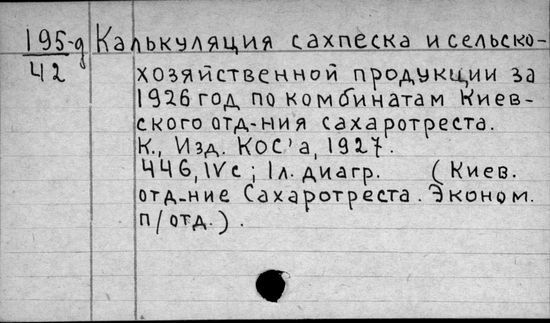 195-д Калькуляция сахпеска и сельско-
42 хозяйственной продукции за
1926 год по комбинатам Киев-
ского отд-ния сахаротреста.
К., Изд. КОС'а, 1927.
446, IVс; 1л. диагр. (Киев.
отд-ние Сахаротреста. Эконом.
п/отд.).